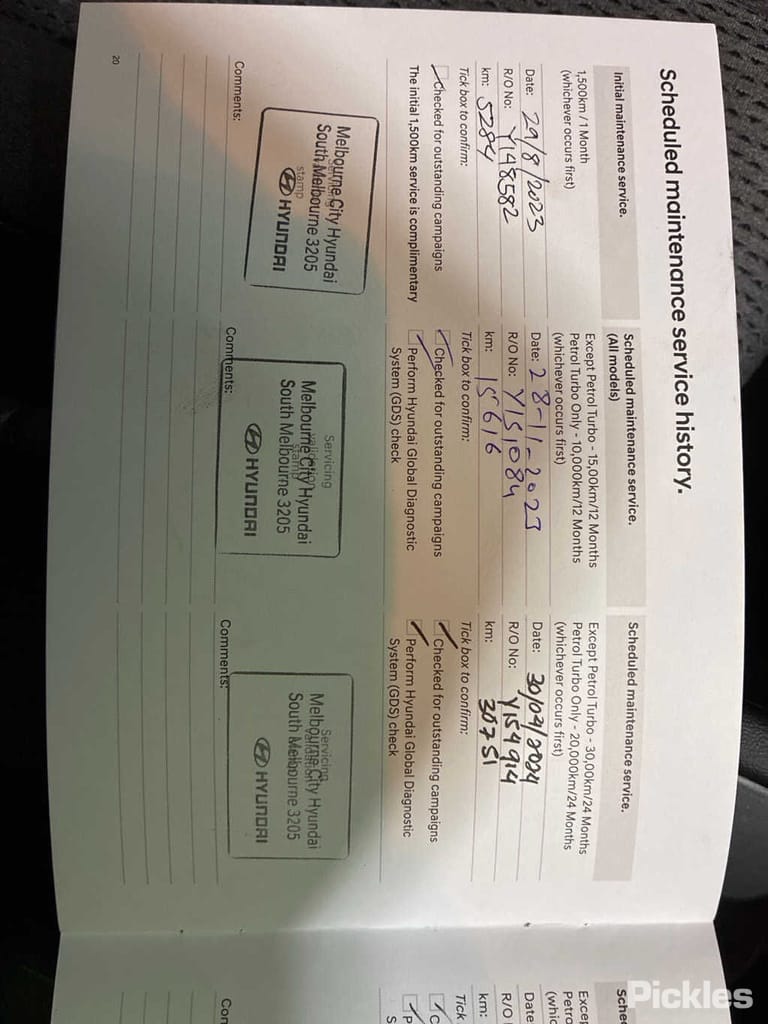 Scheduled maintenance service history.
Initial maintenance service.
1,500km / 1 Month
(whichever occurs first)
Date: 29/8/2023
R/O No: Y148582
km: 5284
Tick box to confirm:
Checked for outstanding campaigns
The initial 1,500km service is complimentary
Servicing
stamp
Melbourne City Hyundai
South Melbourne 3205
HYUNDAI
Comments:
Scheduled maintenance service.
(All models)
Except Petrol Turbo - 15,00km/12 Months
Petrol Turbo Only - 10,000km/12 Months
(whichever occurs first)
Date: 28-11-2023
R/O No: Y151084
km: 15616
Tick box to confirm:
Checked for outstanding campaigns
Perform Hyundai Global Diagnostic
System (GDS) check
Servicing
validation
stamp
Melbourne City Hyundai
South Melbourne 3205
HYUNDAI
Comments:
Scheduled maintenance service.
Except Petrol Turbo - 30,00km/24 Months
Petrol Turbo Only - 20,000km/24 Months
(whichever occurs first)
Date: 30/04/2024
R/O No: Y154914
km: 30751
Tick box to confirm:
Checked for outstanding campaigns
Perform Hyundai Global Diagnostic
System (GDS) check
Servicing
validation
Melbourne City Hyundai
South Melbourne 3205
HYUNDAI
Comments:
20
Sche
Excep
Petro
(whic
Date
R/O
km:
Tick
C
P
S
Con
Pickles